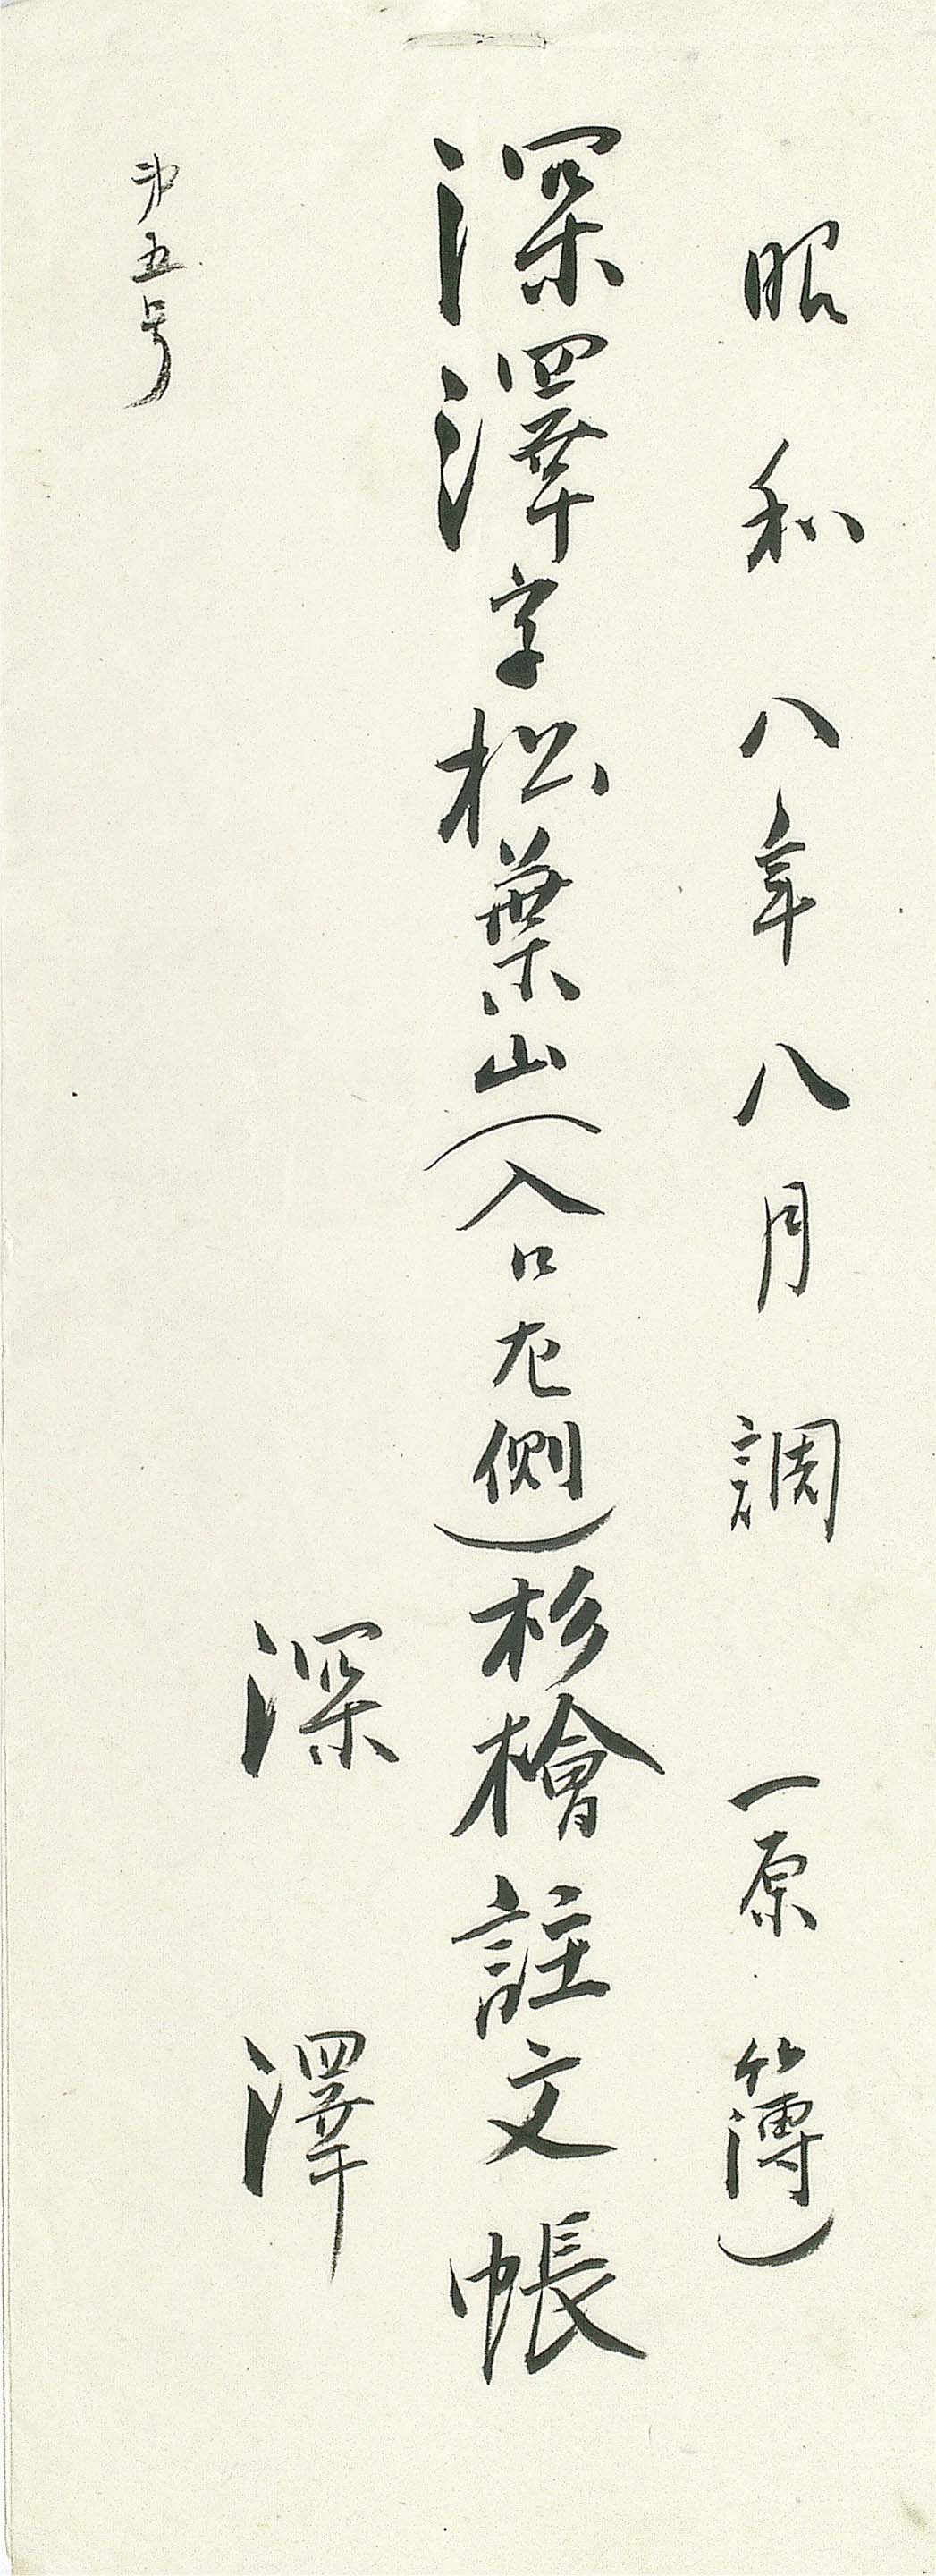 昭和八年八月調 (原簿)
深澤字松葉山(入口左側)杉檜註文帳
深澤
第五号